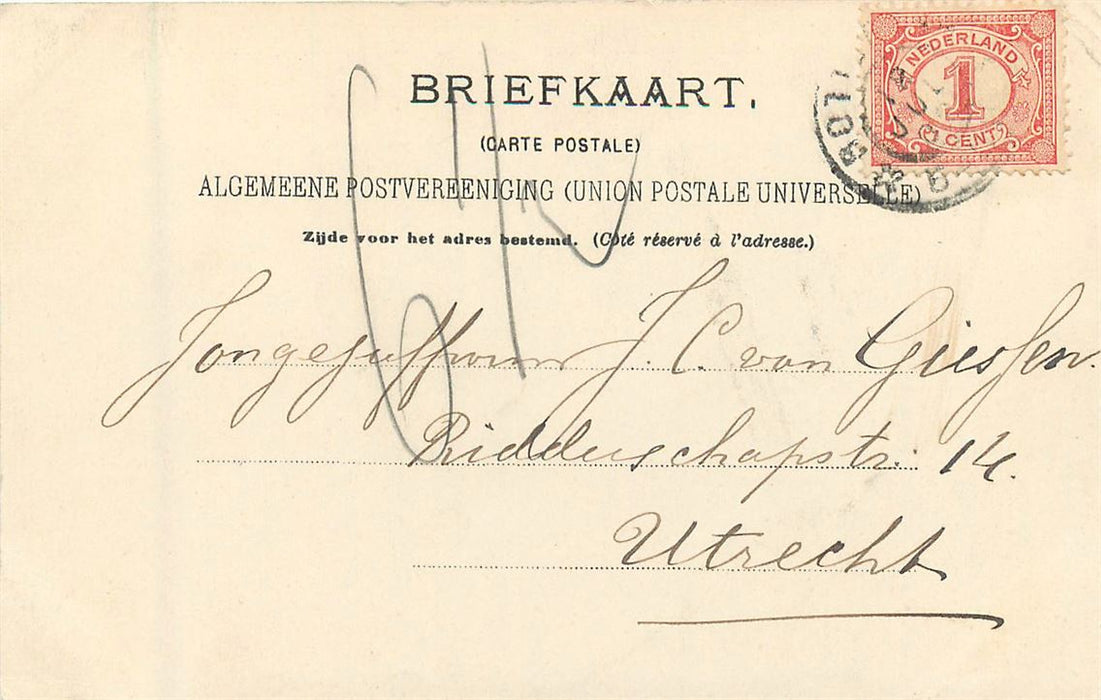 BRIEFKAART.
(CARTE POSTALE)
ALGEMEENE POSTVEREENIGING (UNION POSTALE UNIVERSELLE)
Zijde voor het adres bestemd. (Côté réservé à l'adresse.)
NEDERLAND
1
CENT
Jongejuffrouw J. C. van Giessen.
Ridderschapstr. 14.
Utrecht